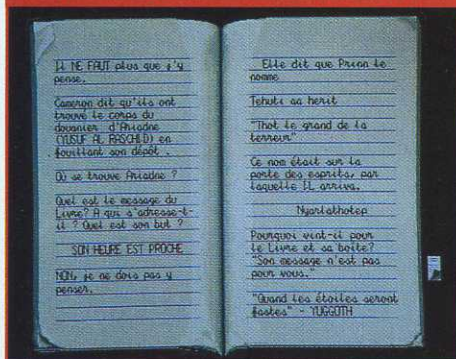 IL NE FAUT plus que j'y
pense.
Cameron dit qu'ils ont
trouvé le corps du
douanier d'Ariadne
(YUSUF AL RASCHID) en
fouillant son dépôt .
Où se trouve Ariadne ?
Quel est le message du
Livre? A qui s'adresse-t-
il ? Quel est son but ?
SON HEURE EST PROCHE
NON, je ne dois pas y
penser.
Elle dit que Prinn le
nomme
Tehuti sa herit
"Thot le grand de la
terreur"
Ce nom était sur la
porte des esprits, par
laquelle IL arriva.
Nyarlathotep
Pourquoi vint-il pour
le Livre et sa boîte?
"Son message n'est pas
pour vous."
"Quand les étoiles seront
fastes" - YUGGOTH